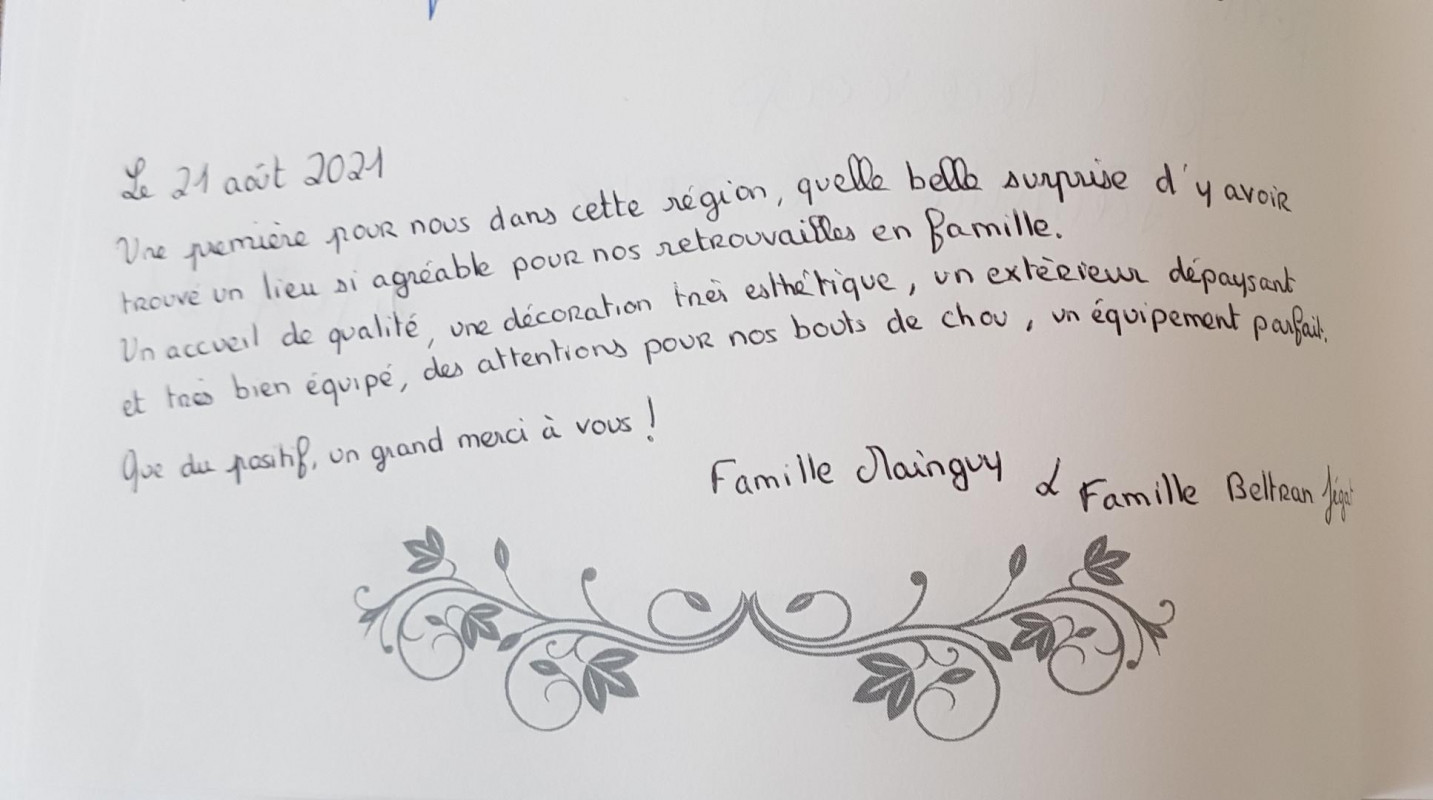 Le 21 août 2021
Une première pour nous dans cette région, quelle belle surprise d'y avoir
trouvé un lieu si agréable pour nos retrouvailles en famille.
Un accueil de qualité, une décoration très esthétique, un extérieur dépaysant
et très bien équipé, des attentions pour nos bouts de chou, un équipement parfait.
Que du positif, un grand merci à vous !
Famille Mainguy & Famille Beltran